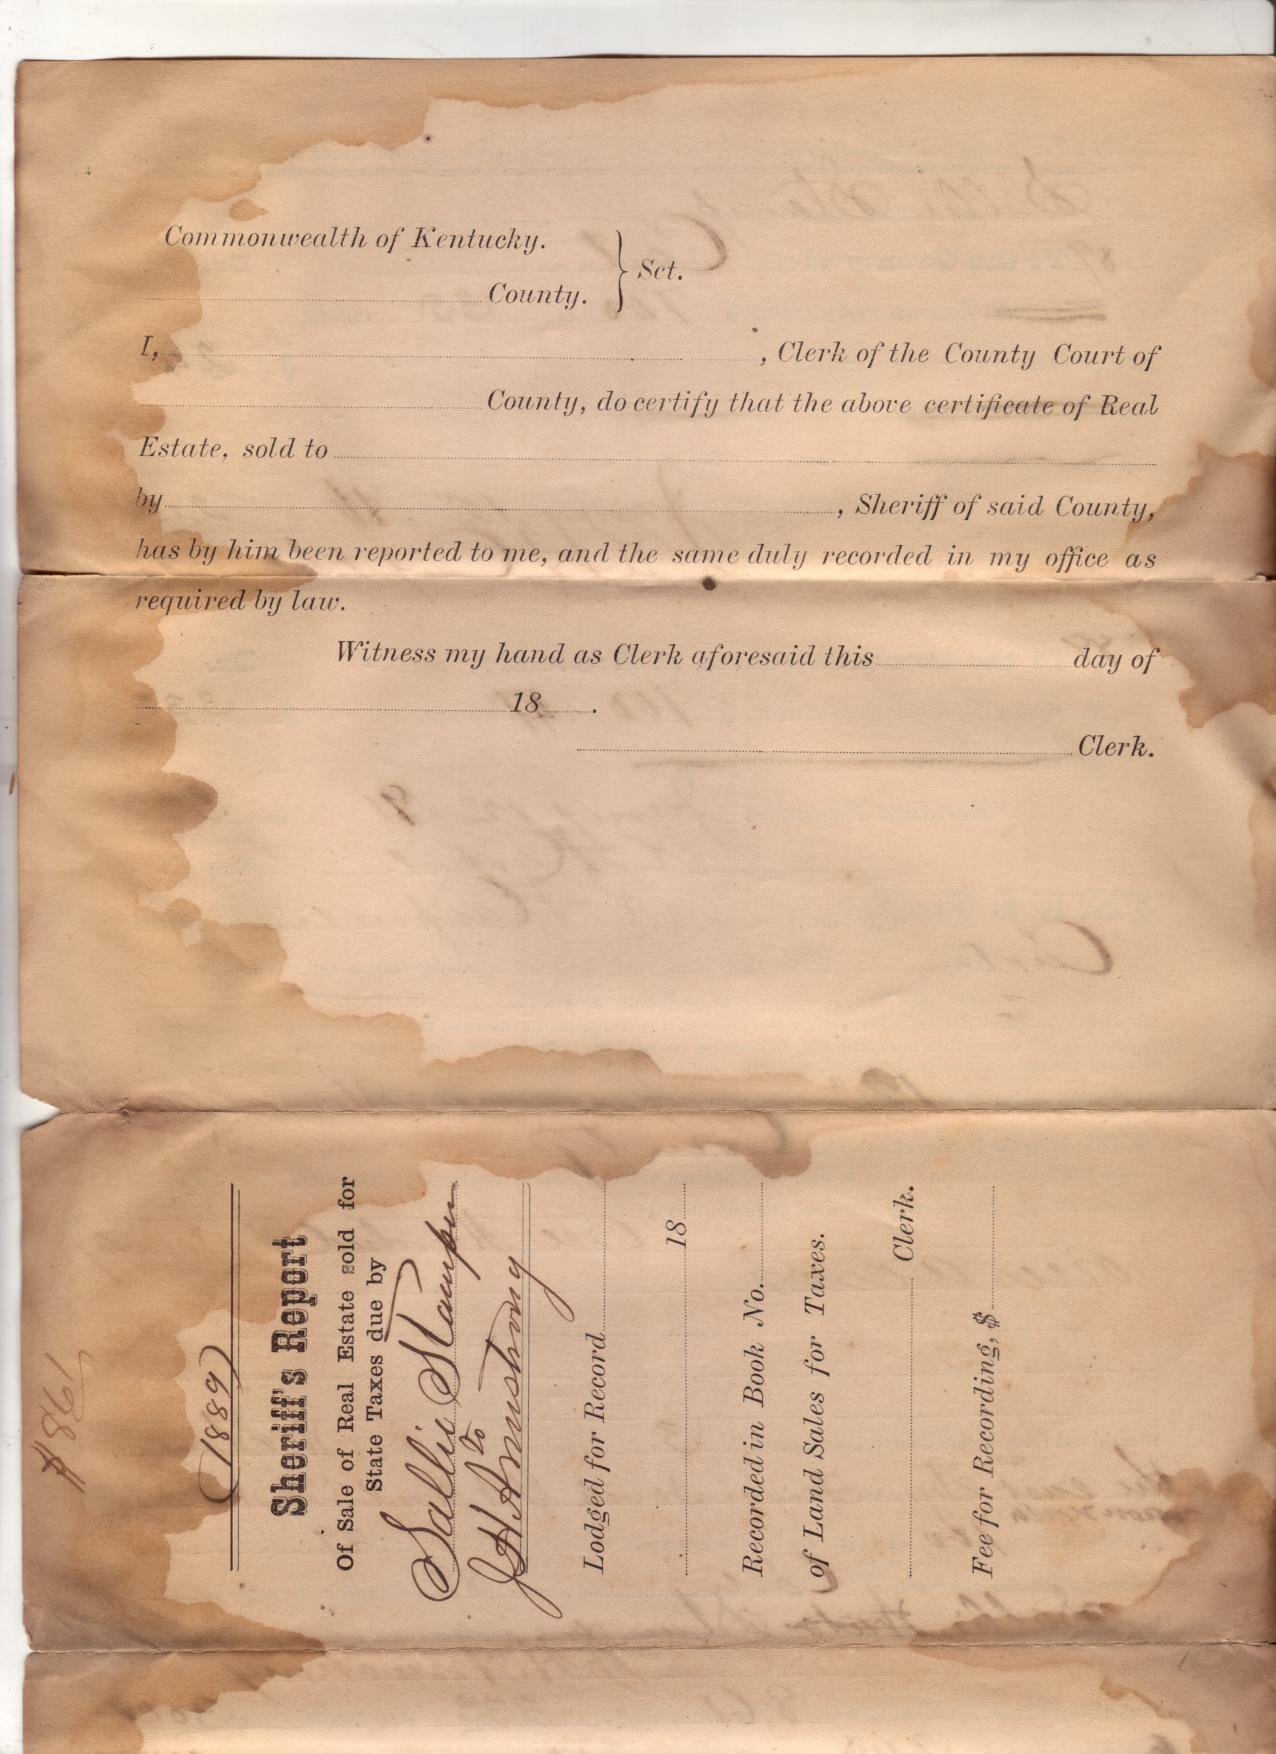 Commonwealth of Kentucky.
County. } Sct.
I, , Clerk of the County Court of
County, do certify that the above certificate of Real
Estate, sold to
by , Sheriff of said County,
has by him been reported to me, and the same duly recorded in my office as
required by law.
Witness my hand as Clerk aforesaid this day of
18 .
Clerk.
$861
1889
Sheriff's Report
Of Sale of Real Estate sold for
State Taxes due by
Sallie Stamper
to
J H Armstrong
Lodged for Record
18
Recorded in Book No.
of Land Sales for Taxes.
Clerk.
Fee for Recording, $